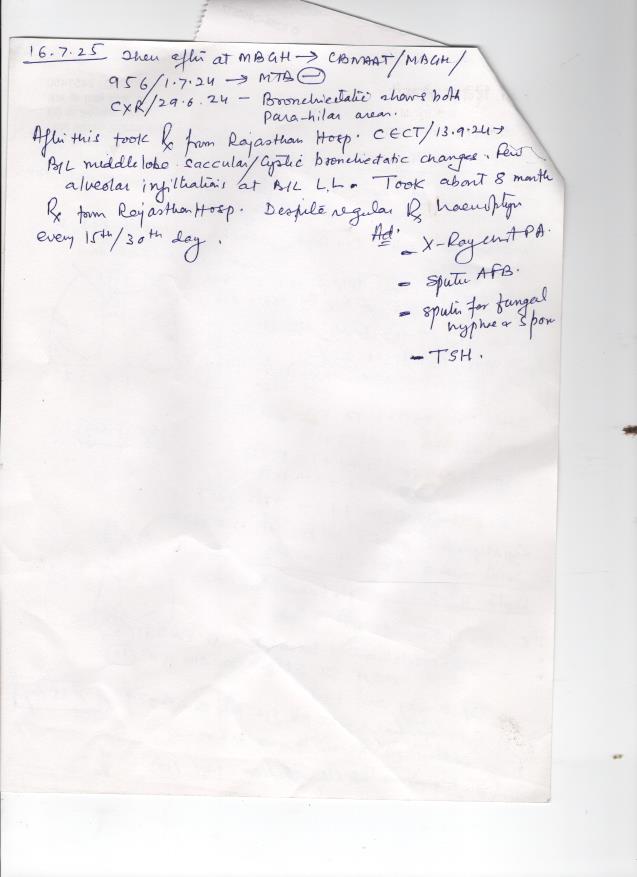 16.7.25 Then after at MBGH → CBNAAT/MBGH/
956/1.7.24 → MTB (–)
CXR/29.6.24 – Bronchiectatic shows both
Para-hilar area.
After this took Rx from Rajasthan Hosp. CECT/13.9.24→
B/L middle lobe saccular/Cystic bronchiectatic changes. Few
alveolar infiltrations at B/L L.L. Took about 8 month
Rx form Rajasthan Hosp. Despite regular Rx haemoptysis
every 15th/30th day.
Ad.
– X-Ray chest PA.
– Sputu AFB.
– Sputu for fungal
hyphae & Spore
– TSH.